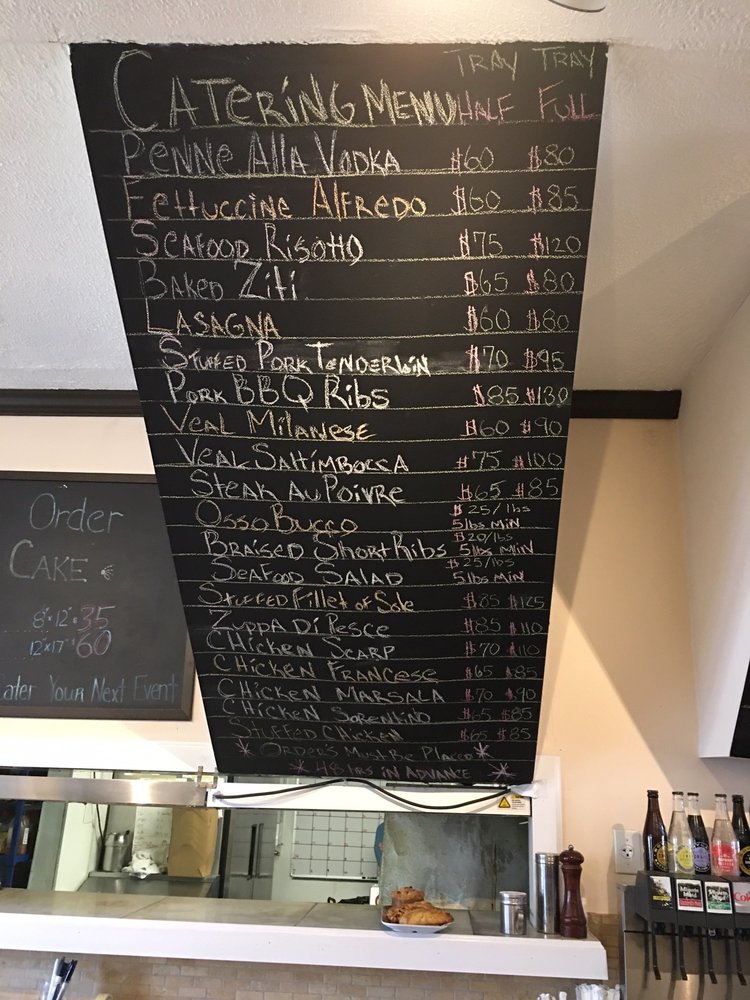 TRAY TRAY
CATERING MENU HALF FULL
PENNE AllA VODKA $60 $80
FETTUCCINE AlFREDO $60 $85
SEAFOOD RISOTTO $75 $120
BAKED ZITI $65 $80
LASAGNA $60 $80
STUFFED PORK TENDERLOIN $70 $95
PORK BBQ RIBS $85 $130
VEAL MILANESE $60 $90
VEAL SALTIMBOCCA $75 $100
STEAK AU POIVRE $65 $85
OSSO BUCCO $25/lbs
5lbs MIN
BRAISED SHORT RIBS $20/lbs
5lbs MIN
SEAFOOD SALAD $25/lbs
5lbs MIN
STUFFED FILLET OF SOLE $85 $125
ZUPPA DI PESCE $85 $110
CHICKEN SCARP $70 $110
CHICKEN FRANCESE $65 $85
CHICKEN MARSALA $70 $90
CHICKEN SORENTINO $65 $85
STUFFED CHICKEN $65 $85
* ORDER'S MUST BE PLACED *
* 48 HRS IN ADVANCE *
Order
CAKE
8"x12" $35
12"x17" $60
Cater Your Next Event